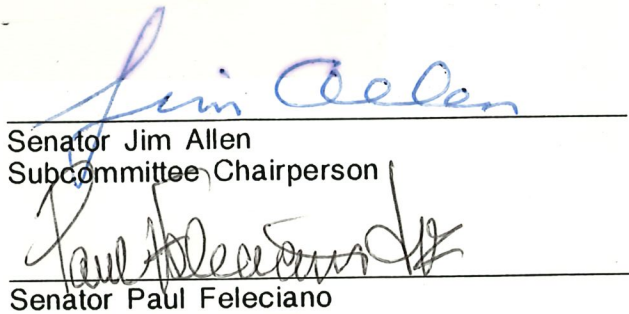 Jim Allen
Senator Jim Allen
Subcommittee Chairperson
Paul Feleciano Jr
Senator Paul Feleciano